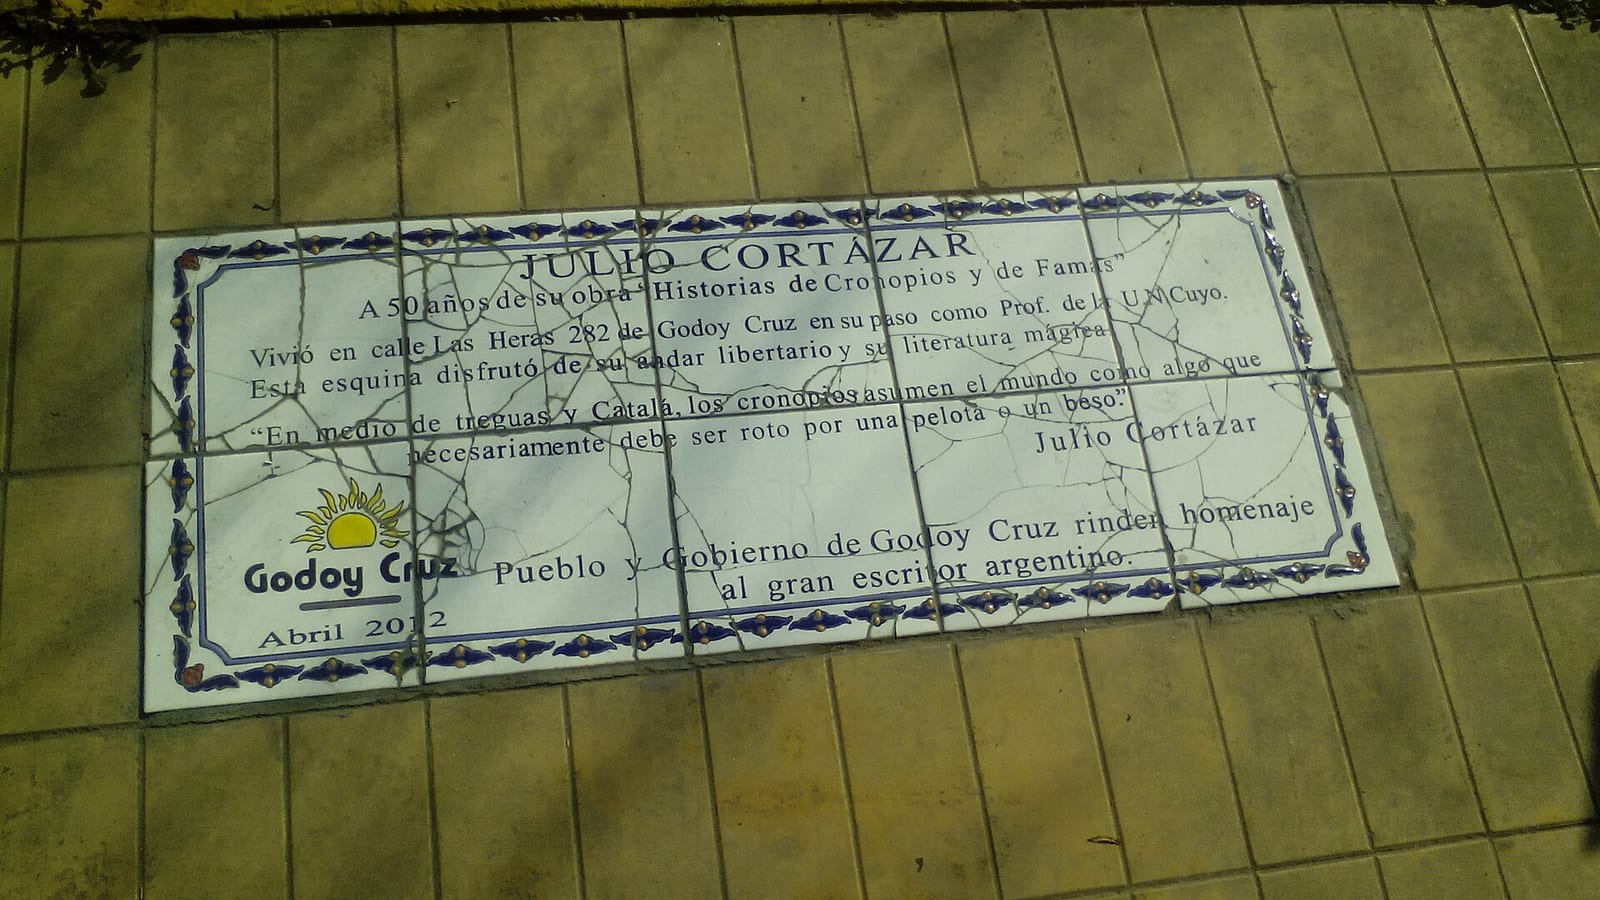 JULIO CORTÁZAR
A 50 años de su obra "Historias de Cronopios y de Famas"
Vivió en calle Las Heras 282 de Godoy Cruz en su paso como Prof. de la U.N Cuyo.
Esta esquina disfrutó de su andar libertario y su literatura mágica
"En medio de treguas y Catalá, los cronopios asumen el mundo como algo que
necesariamente debe ser roto por una pelota o un beso"
Julio Cortázar
Godoy Cruz
Abril 2012
Pueblo y Gobierno de Godoy Cruz rinden homenaje
al gran escritor argentino.